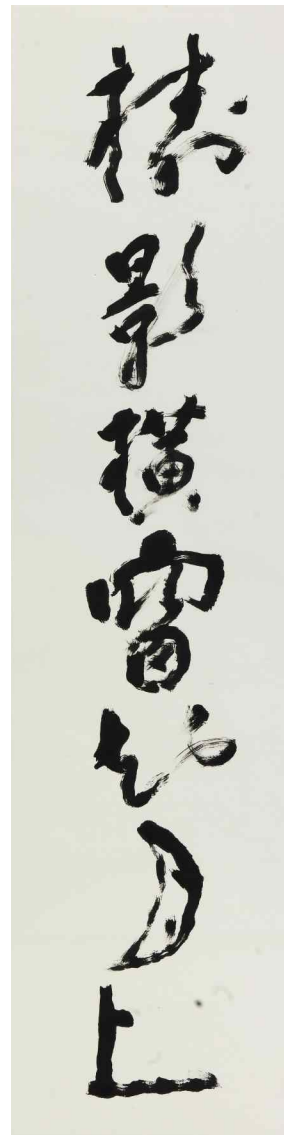 樹影横窗知月上